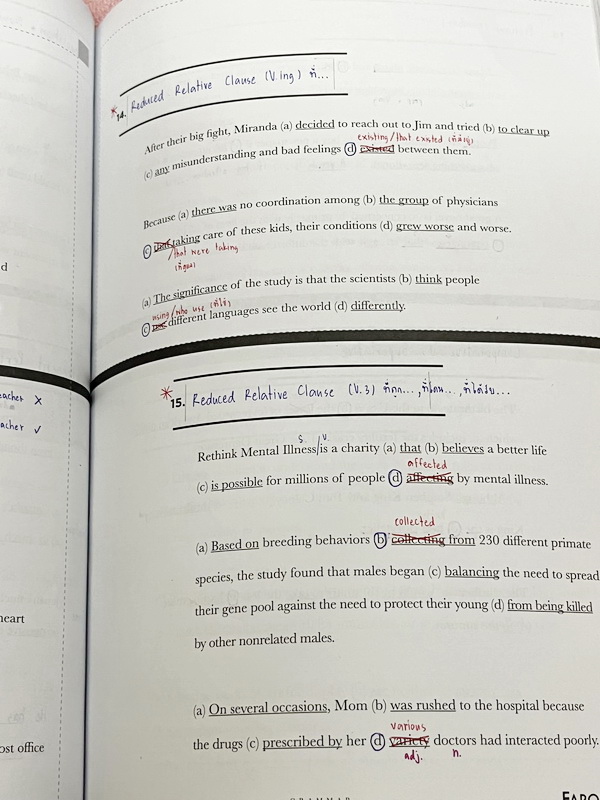 d
eacher X
acher ✓
heart
ost office
*14. Reduced Relative Clause (V.ing) ที่...
After their big fight, Miranda (a) decided to reach out to Jim and tried (b) to clear up
existing/that existed (ที่มีอยู่)
(c) any misunderstanding and bad feelings (d) existed between them.
Because (a) there was no coordination among (b) the group of physicians
(c) that taking care of these kids, their conditions (d) grew worse and worse.
/that were taking
ที่ดูแล
(a) The significance of the study is that the scientists (b) think people
using/who use (ที่ใช้)
(c) use different languages see the world (d) differently.
*15. Reduced Relative Clause (V.3) ที่ถูก..., ที่โดน..., ที่ได้รับ...
S. V.
Rethink Mental Illness/is a charity (a) that (b) believes a better life
affected
(c) is possible for millions of people (d) affecting by mental illness.
collected
(a) Based on breeding behaviors (b) collecting from 230 different primate
species, the study found that males began (c) balancing the need to spread
their gene pool against the need to protect their young (d) from being killed
by other nonrelated males.
(a) On several occasions, Mom (b) was rushed to the hospital because
various
the drugs (c) prescribed by her (d) variety doctors had interacted poorly.
adj. n.
GRAMMAR